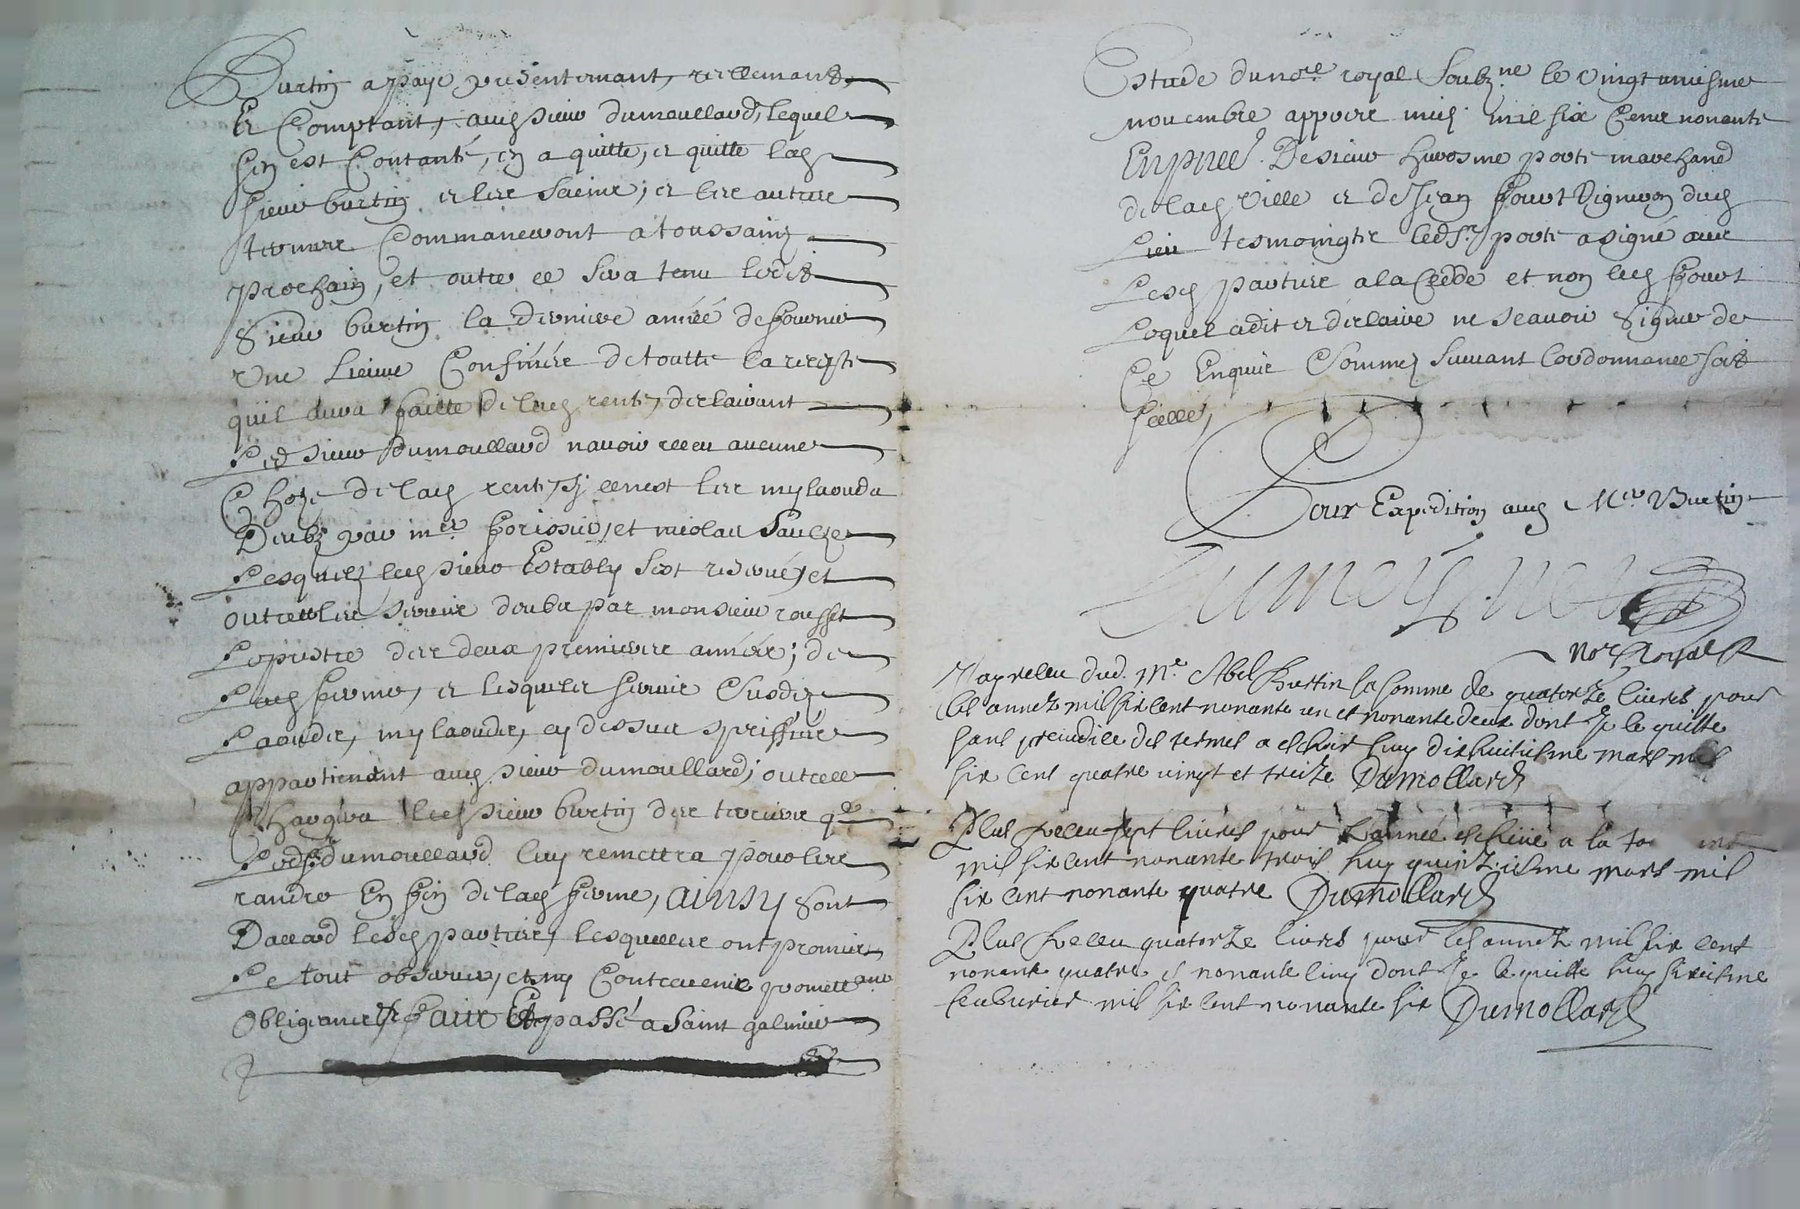 Burtin a payé presentemant, reellemant
Et Comptant, aud sieur dumoullard, lequel
sen est Contanté, en a quitté, et quitte led
sieur burtin et les siens; et les autres
termes Commanceront a toussainz
prochain, et outre ce sera tenu ledit
Sieur burtin la derniere année de fournir
une lieve Confinée de toutte la recepte
quil aura faitte de lad rente, declairant
Led sieur dumoullard navoir receu aucune
Choze de lad rente, sy cenest les mylaouds
par et nicolas
lesquelz led sieur sest reservé, et
outre les par monsieur rousset
des deux premieres années, de
Lad ferme, et lesquelles susdiz
Laouds, mylaouds, cy dessus
appartienent aud sieur dumoullard; outre ce
led sieur burtin des terriers q
Led sr dumoullard luy remettra pour les
randre En fin de lad ferme, ainsy Sont
Daccord lesd parties, lesquelles ont promis
Le tout observer, et ny Contrevenir promett ant
Obligeance &c faict Et passé a Saint galmier
Estude du nore royal soubz ne le vingt uniesme
novembre appres midy mil six Cent nonante
En pnce De sieur porte marchand
de lad Ville et de Jean fouvt Vigneron dud
Lieu tesmoingtz led Sr porte a signé avec
Lesd parties a la Cedde et non led fouvt
Loquel a dit et declairé ne scavoir Signer de
Ce Enquis Sommez suivant lordonnance soit
scellé,
Pour Expedition aud Mer Burtin
nore Royal
Jay receu dud. Me Abel Burtin la somme de quatorze livres pour
les annez mil six cent nonante un et nonante deux dont Je le quitte
sans preiudice des termes a eschoir ce huy dixhuitiesme mars mil
six cent quatre vingt et treize Dumollard
Plus receu sept livres pour l'année escheue a la
mil six cent nonante trois huy quinziesme mars mil
six cent nonante quatre Dumollard
Plus receu quatorze livres pour les annez mil six cent
nonante quatre et nonante cinq dont Je le quitte huy sixiesme
feubvrier mil six cent nonante six Dumollard